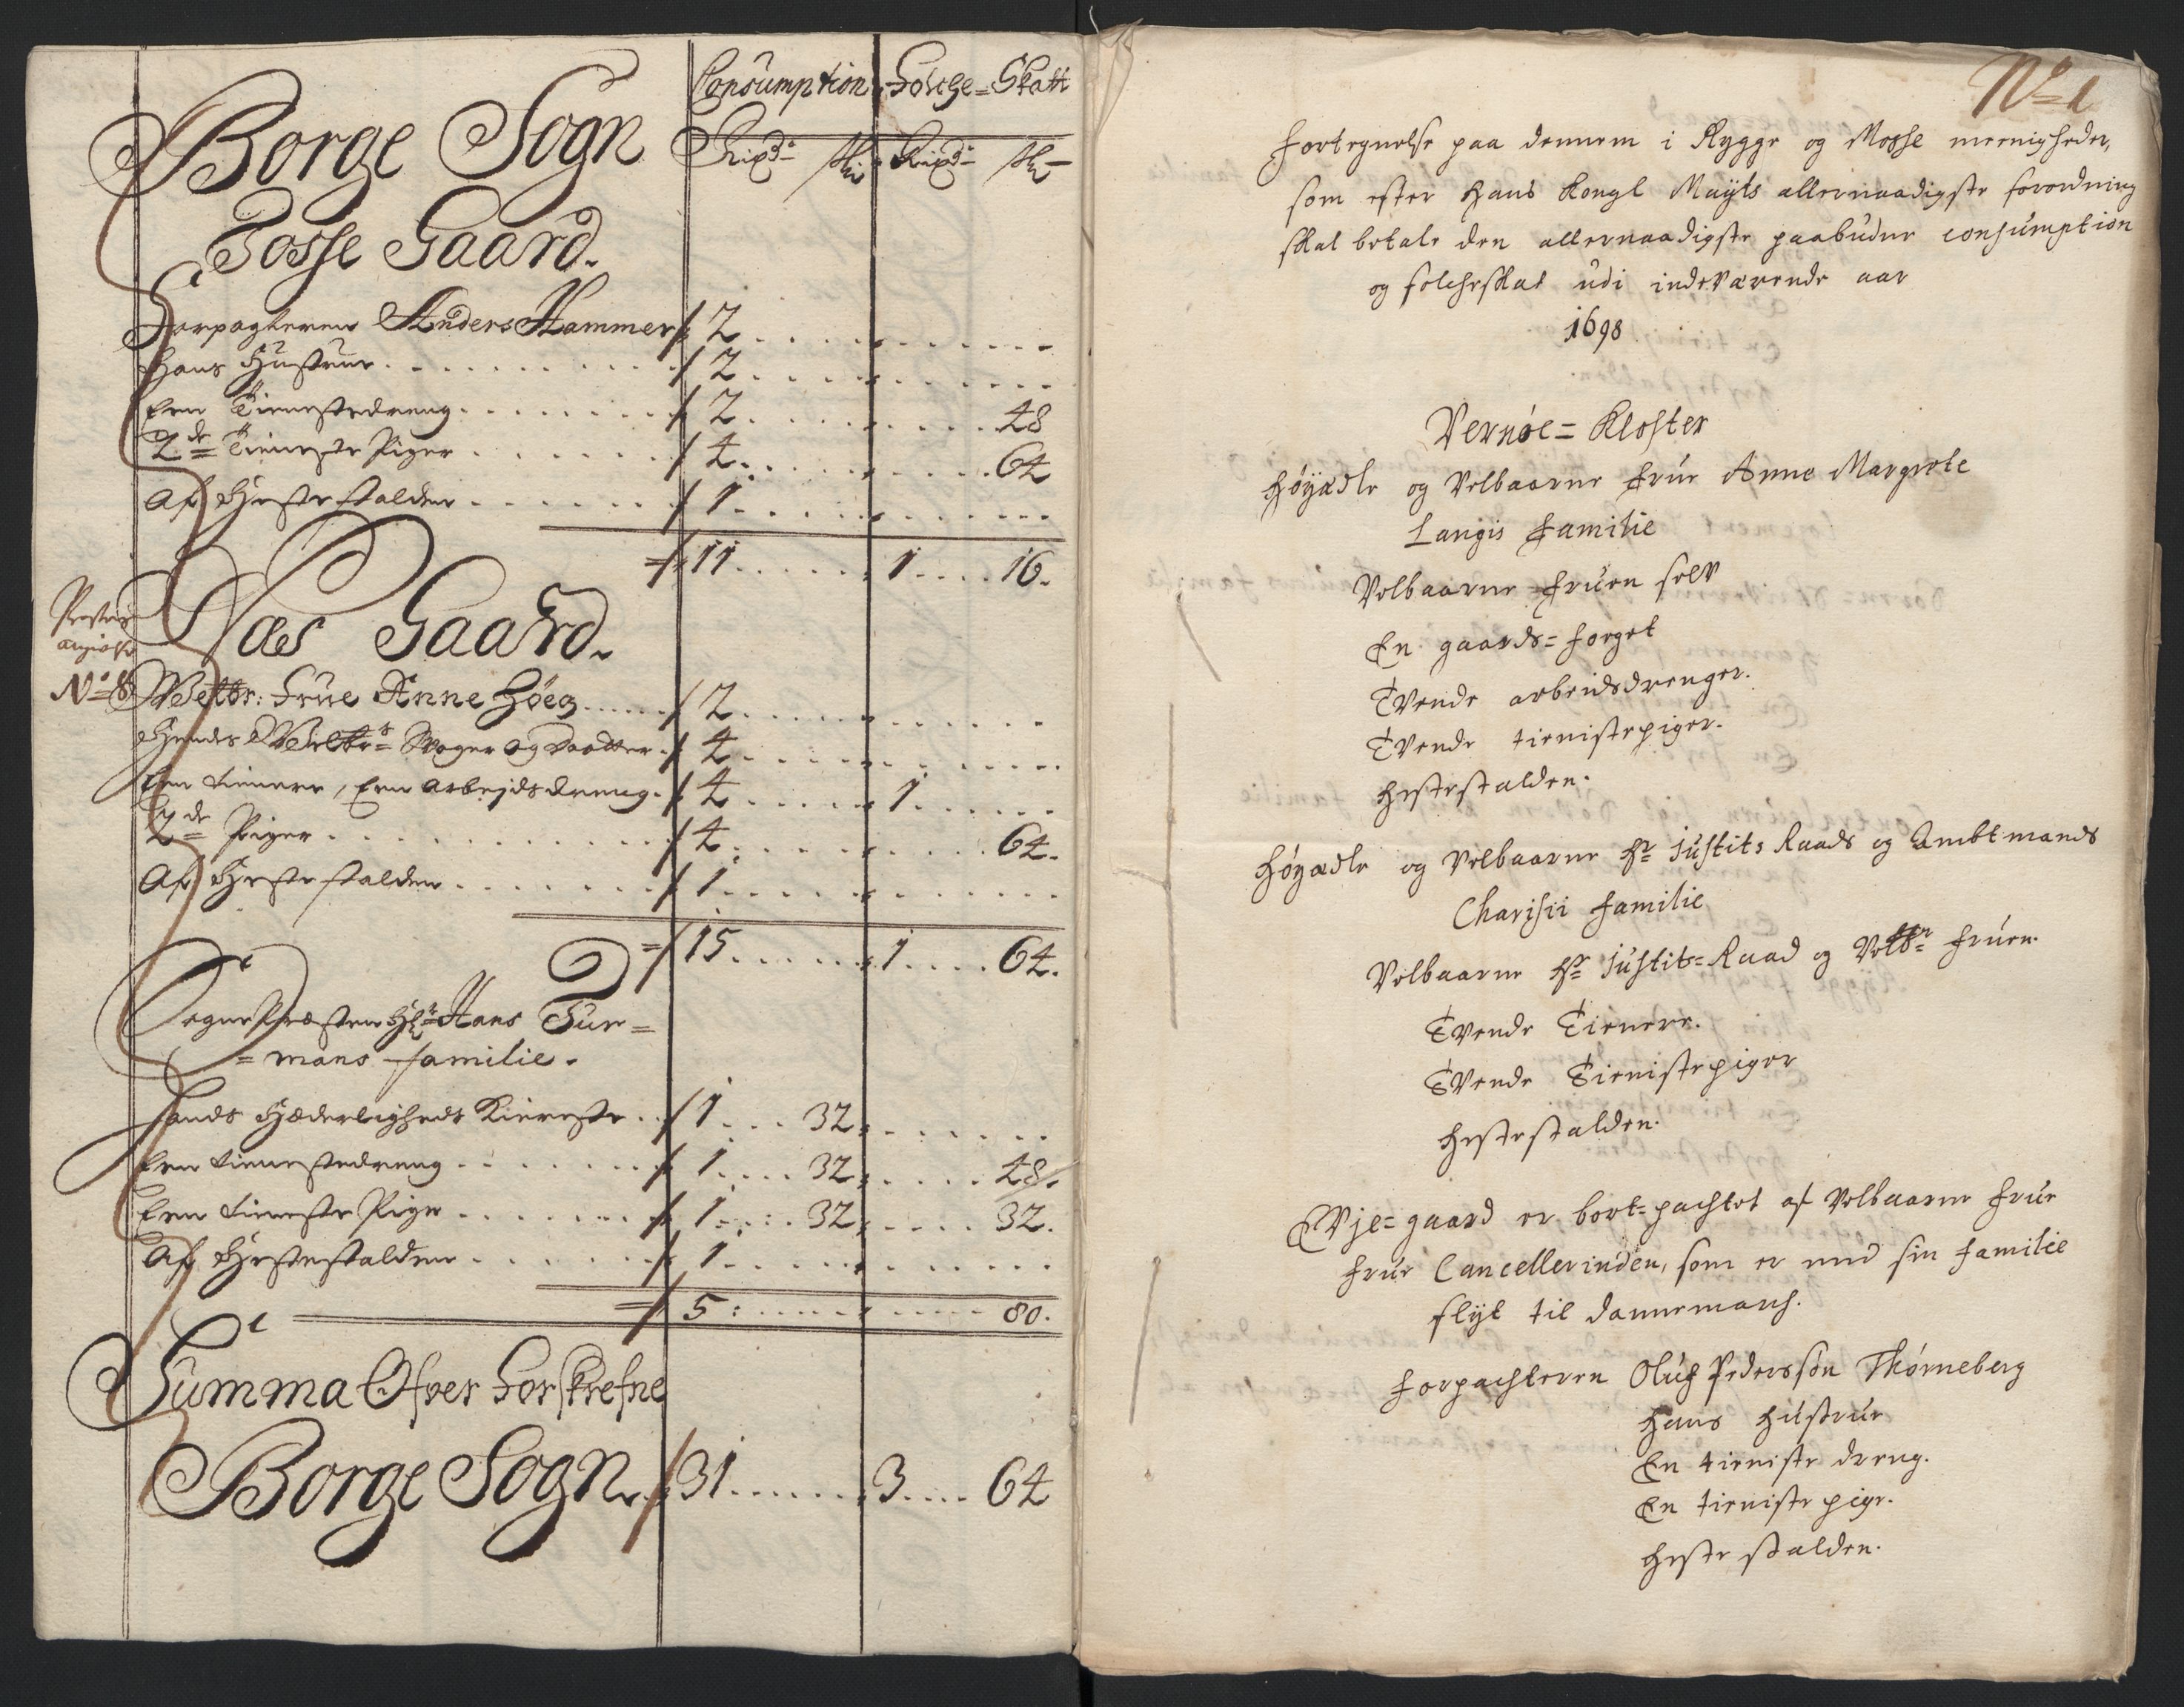 Consumption Folche=Skatt
Borge Sogn Rixd. sk. Rixd. sk.
Tosse Gaard.
Forpagteren Anders Hammer 2
Hans Hustrue 2
Een Tienestedreng 2 48
2de Tieneste Piger 4 64
Af Hestestalden 1
11 1 16.
Næs Gaard.
No 8 Welbr: Frue Anne Høeg 2
Hendes Welbr Svoger og Daatter 4
Een tienere, Een Arbejdsdreng 4 1
2de Piger 4 64.
Af Hestestalden 1
15 1 64.
Sogne Præsten Hr Hans Tur=
=mans familie.
Hands Hæderligheds Kiereste 1 32
Een tienestedreng 1 32 48.
Een tieneste Pige 1 32 32.
Af Hestestalden 1
5: 80.
Summa Ofver Forskrefne
Borge Sogn 31 3 64
No 1
Fortegnelse paa dennem i Rygge og Mosse meenigheder,
som efter Hans Kongl Mayts allernaadigste forordning
skal betale den allernaadigste paabudne consumption
og folcheskat udi indeværende aar
1698
Vernøe=Kloster
Høyædle og Velbaarne Frue Anne Margrete
Langis Familie
Velbaarne Fruen selv
En gaards=foget
Tvende arbeidsdrenger.
Tvende tienistepiger.
Hestestalden.
Høyædle og Velbaarne Hr Justits Raads og Ambtmands
Charisii Familie
Velbaarne Hr Justits=Raad og Velbr Fruen.
Tvende Tienere.
Tvende Tienistepiger
Hestestalden.
Evje=gaard er bort=pachtet af Velbaarne Frue
Frue Cancellerinden, som er med sin familie
flyt til Dannemarch.
Forpachteren Oluf Pedersøn Thørneberg
Hans Hustrue
En tieniste dreng.
En tieniste pige.
Heste stalden.